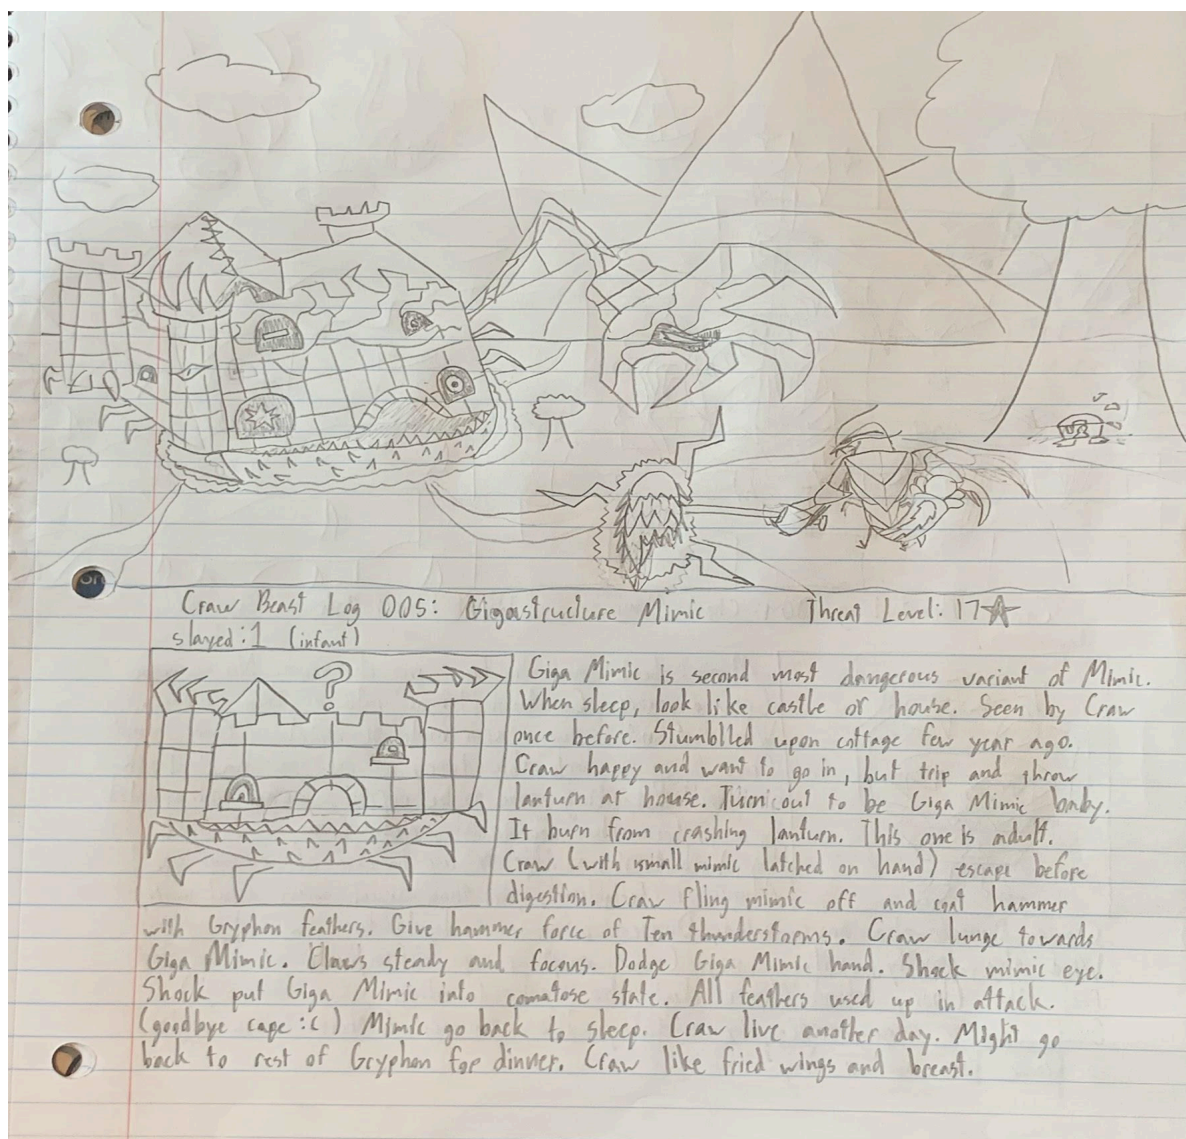 Craw Beast Log 005: Gigastructure Mimic Threat Level: 17☆
slayed: 1 (infant)
?
Giga Mimic is second most dangerous variant of Mimic.
When sleep, look like castle or house. Seen by Craw
once before. Stumblled upon cottage few year ago.
Craw happy and want to go in, but trip and throw
lanturn at house. Turn out to be Giga Mimic baby.
It burn from crashing lanturn. This one is adult.
Craw (with small mimic latched on hand) escape before
digestion. Craw fling mimic off and coat hammer
with Gryphon feathers. Give hammer force of Ten thunderstorms. Craw lunge towards
Giga Mimic. Claws steady and focous. Dodge Giga Mimic hand. Shock mimic eye.
Shock put Giga Mimic into comatose state. All feathers used up in attack.
(goodbye cape :c ) Mimic go back to sleep. Craw live another day. Might go
back to rest of Gryphon for dinner. Craw like fried wings and breast.